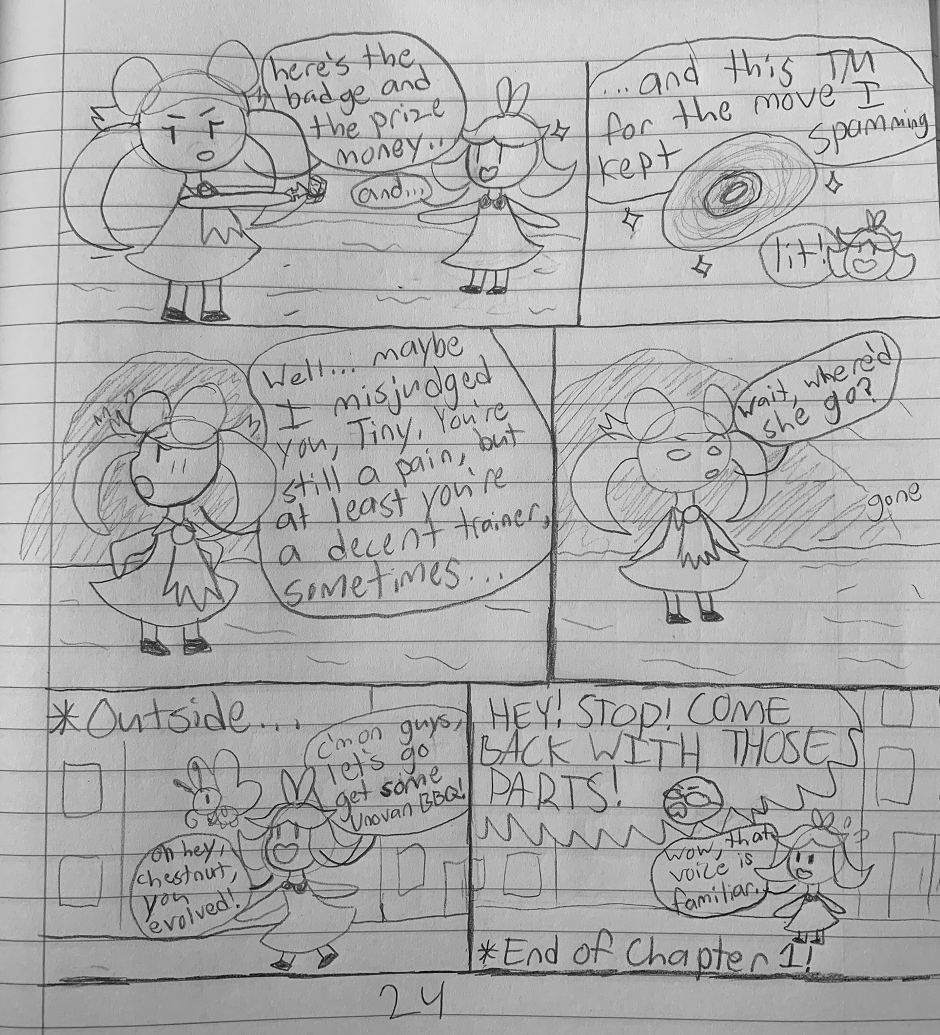 here's the
badge and
the prize
money..
and...
...and this TM
for the move I
kept spamming
lit!
Well... maybe
I misjudged
you, Tiny. You're
still a pain, but
at least you're
a decent trainer,
sometimes...
wait, where'd
she go?
gone
*Outside...
c'mon guys,
let's go
get some
Unovan BBQ!
oh hey,
chestnut,
you
evolved!
HEY! STOP! COME
BACK WITH THOSE
PARTS!
wow, that
voice is
familiar.
*End of Chapter 1!
24